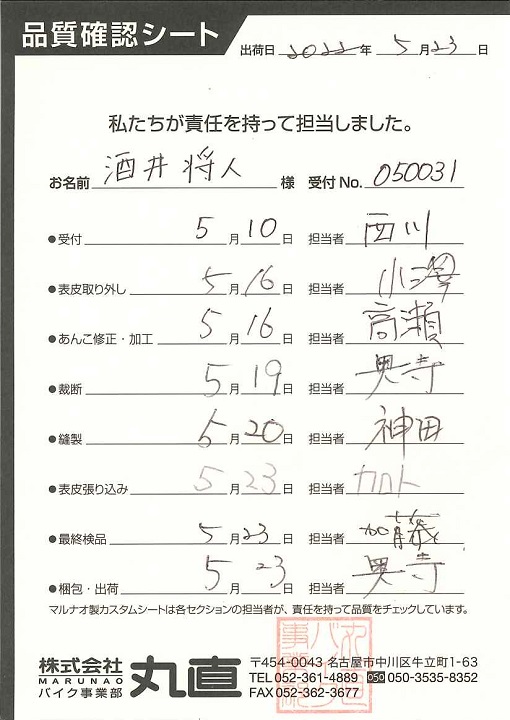 品質確認シート
出荷日 2022年 5月23日
私たちが責任を持って担当しました。
お名前 酒井 将人 様 受付No. 050031
●受付 5月10日 担当者 西川
●表皮取り外し 5月16日 担当者 小澤
●あんこ修正・加工 5月16日 担当者 高瀬
●裁断 5月19日 担当者 奥寺
●縫製 5月20日 担当者 神田
●表皮張り込み 5月23日 担当者 カロト
●最終検品 5月23日 担当者 加藤
●梱包・出荷 5月23日 担当者 奥寺
マルナオ製カスタムシートは各セクションの担当者が、責任を持って品質をチェックしています。
株式会社 丸直
MARUNAO
バイク事業部
〒454-0043 名古屋市中川区牛立町1-63
TEL 052-361-4889 050 050-3535-8352
FAX 052-362-3677